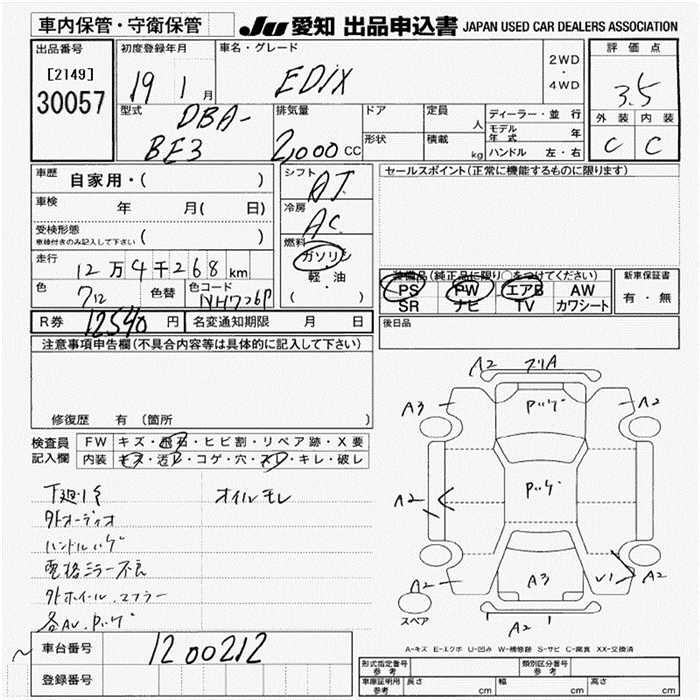 車内保管・守衛保管 JU 愛知 出品申込書 JAPAN USED CAR DEALERS ASSOCIATION
出品番号
[2149]
30057
初度登録年月
19 1 月
車名・グレード
EDIX
2WD
・
4WD
評価点
3.5
外装 内装
C C
型式
DBA-
BE3
排気量
2,000 CC
ドア
形状
定員
人
積載
kg
ディーラー・並行
モデル年式 年
ハンドル 左・右
車歴
自家用・( )
車検
年 月( 日)
受検形態
車検付きのみ記入して下さい ( )
走行
12万4千268 km
色
712
色替
色コード
NH726P
シフト
AT
冷房
AC
燃料
ガソリン
・
軽・油
( )
セールスポイント(正常に機能するものに限ります)
装備品(純正品に限り○をつけてください)
PS PW エアB AW
SR ナビ TV カワシート
新車保証書
有・無
後日品
R券 12540 円
名変通知期限 月 日
注意事項申告欄(不具合内容等は具体的に記入して下さい)
修復歴 有 (箇所 )
検査員
記入欄
FW キズ・飛石・ヒビ割・リペア跡・X要
内装 キズ・汚レ・コゲ・穴・スレ・キレ・破レ
オイルモレ
外オーディオ
ハンドルハゲ
電格ミラー不良
外ホイール、マフラー
A2
A3
A2
A2
A2
A3
A2
A2
スペア
A-キズ E-エクボ U-凹み W-補修跡 S-サビ C-腐食 XX-交換済
車台番号
1200212
登録番号
形式指定番号
参考
類別区分番号
参考
車庫証明用
参考
長さ cm
幅 cm
高さ cm